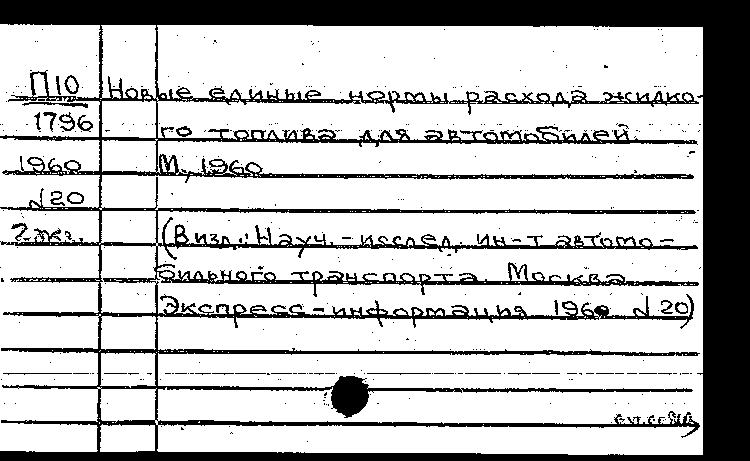 П10 Новые единые нормы расхода жидко-
1796 го топлива для автомобилей.
1960 М., 1960
№20
2 экз. (В изд.: Науч.-исслед. ин-т автомо-
бильного транспорта. Москва
Экспресс-информация 1960 №20)